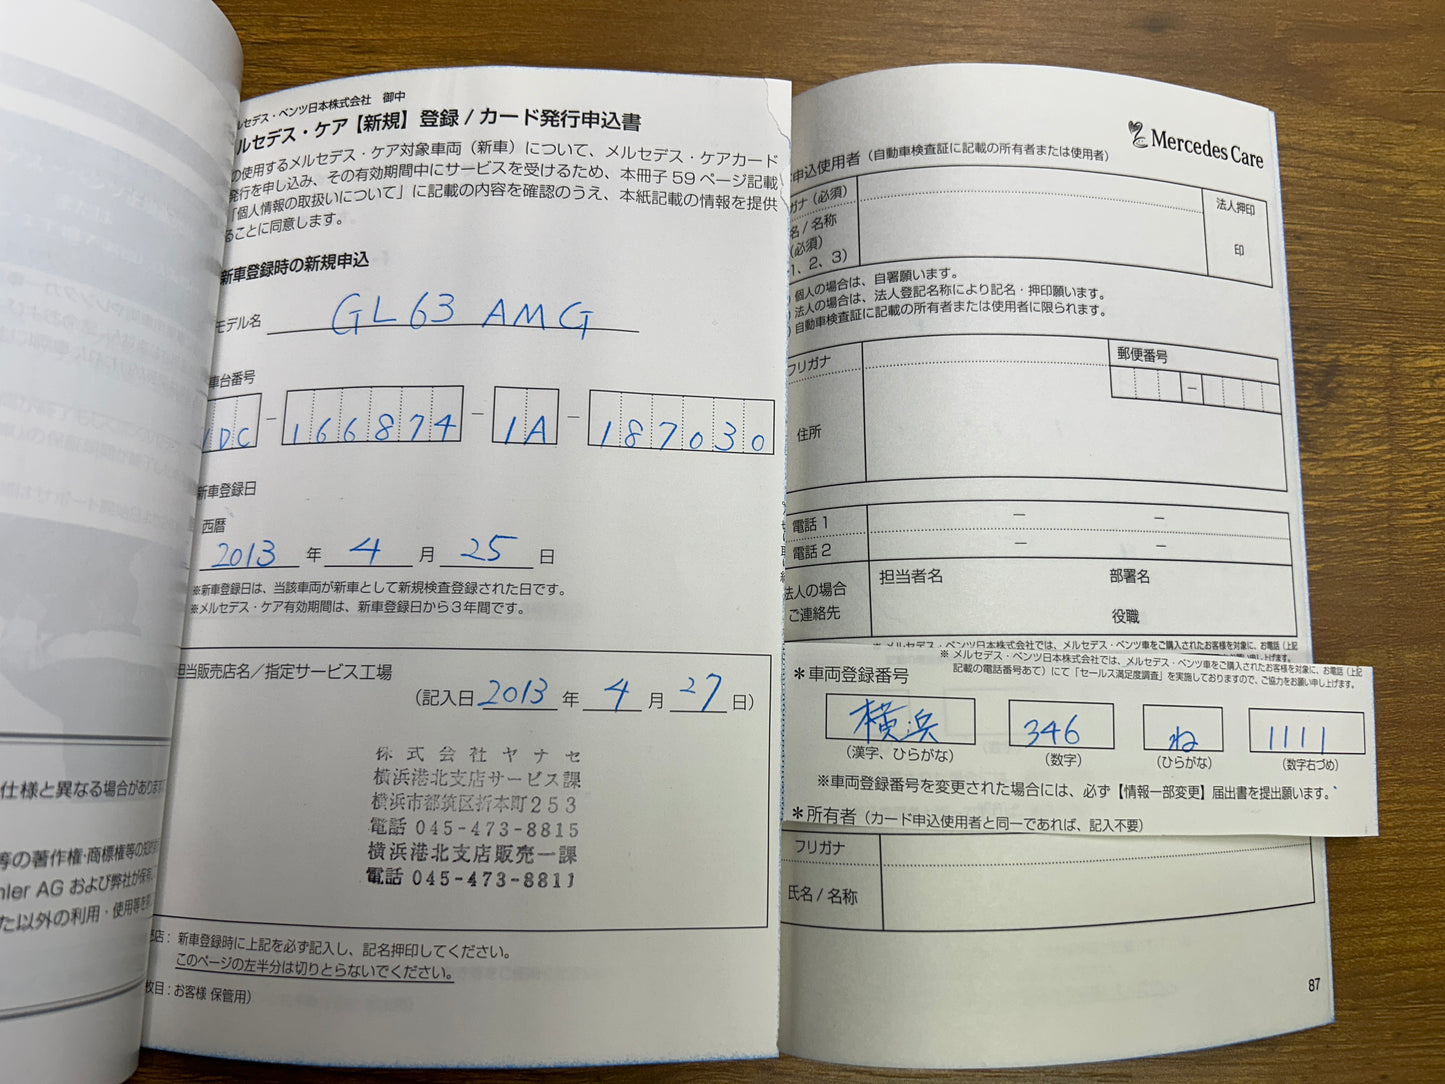 ルセデス・ベンツ日本株式会社　御中
ルセデス・ケア【新規】登録 / カード発行申込書
の使用するメルセデス・ケア対象車両（新車）について、メルセデス・ケアカード
発行を申し込み、その有効期間中にサービスを受けるため、本冊子 59 ページ記載
「個人情報の取扱いについて」に記載の内容を確認のうえ、本紙記載の情報を提供
ることに同意します。
新車登録時の新規申込
モデル名 GL63 AMG
車台番号
DC - 166874 - 1A - 187030
新車登録日
西暦
2013 年 4 月 25 日
※新車登録日は、当該車両が新車として新規検査登録された日です。
※メルセデス・ケア有効期間は、新車登録日から３年間です。
担当販売店名／指定サービス工場
（記入日 2013 年 4 月 27 日）
株式会社ヤナセ
横浜港北支店サービス課
横浜市都筑区折本町２５３
電話 045-473-8815
横浜港北支店販売一課
電話 045-473-8811
売店：新車登録時に上記を必ず記入し、記名押印してください。
このページの左半分は切りとらないでください。
枚目：お客様 保管用）
仕様と異なる場合があります
等の著作権・商標権等の知的
mler AG および弊社が保有
た以外の利用・使用等を
Mercedes Care
申込使用者（自動車検査証に記載の所有者または使用者）
ガナ（必須）
名 / 名称
（必須）
1、2、3）
法人押印
印
個人の場合は、自署願います。
法人の場合は、法人登記名称により記名・押印願います。
自動車検査証に記載の所有者または使用者に限られます。
フリガナ
郵便番号
－
住所
電話 1 － －
電話 2 － －
法人の場合
ご連絡先
担当者名 部署名
役職
※ メルセデス・ベンツ日本株式会社では、メルセデス・ベンツ車をご購入されたお客様を対象に、お電話（上記
※ メルセデス・ベンツ日本株式会社では、メルセデス・ベンツ車をご購入されたお客様を対象に、お電話（上記
記載の電話番号あて）にて「セールス満足度調査」を実施しておりますので、ご協力をお願い申し上げます。
＊車両登録番号
横浜 346 ね 1111
（漢字、ひらがな） （数字） （ひらがな） （数字右づめ）
※車両登録番号を変更された場合には、必ず【情報一部変更】届出書を提出願います。
＊所有者（カード申込使用者と同一であれば、記入不要）
フリガナ
氏名 / 名称
87